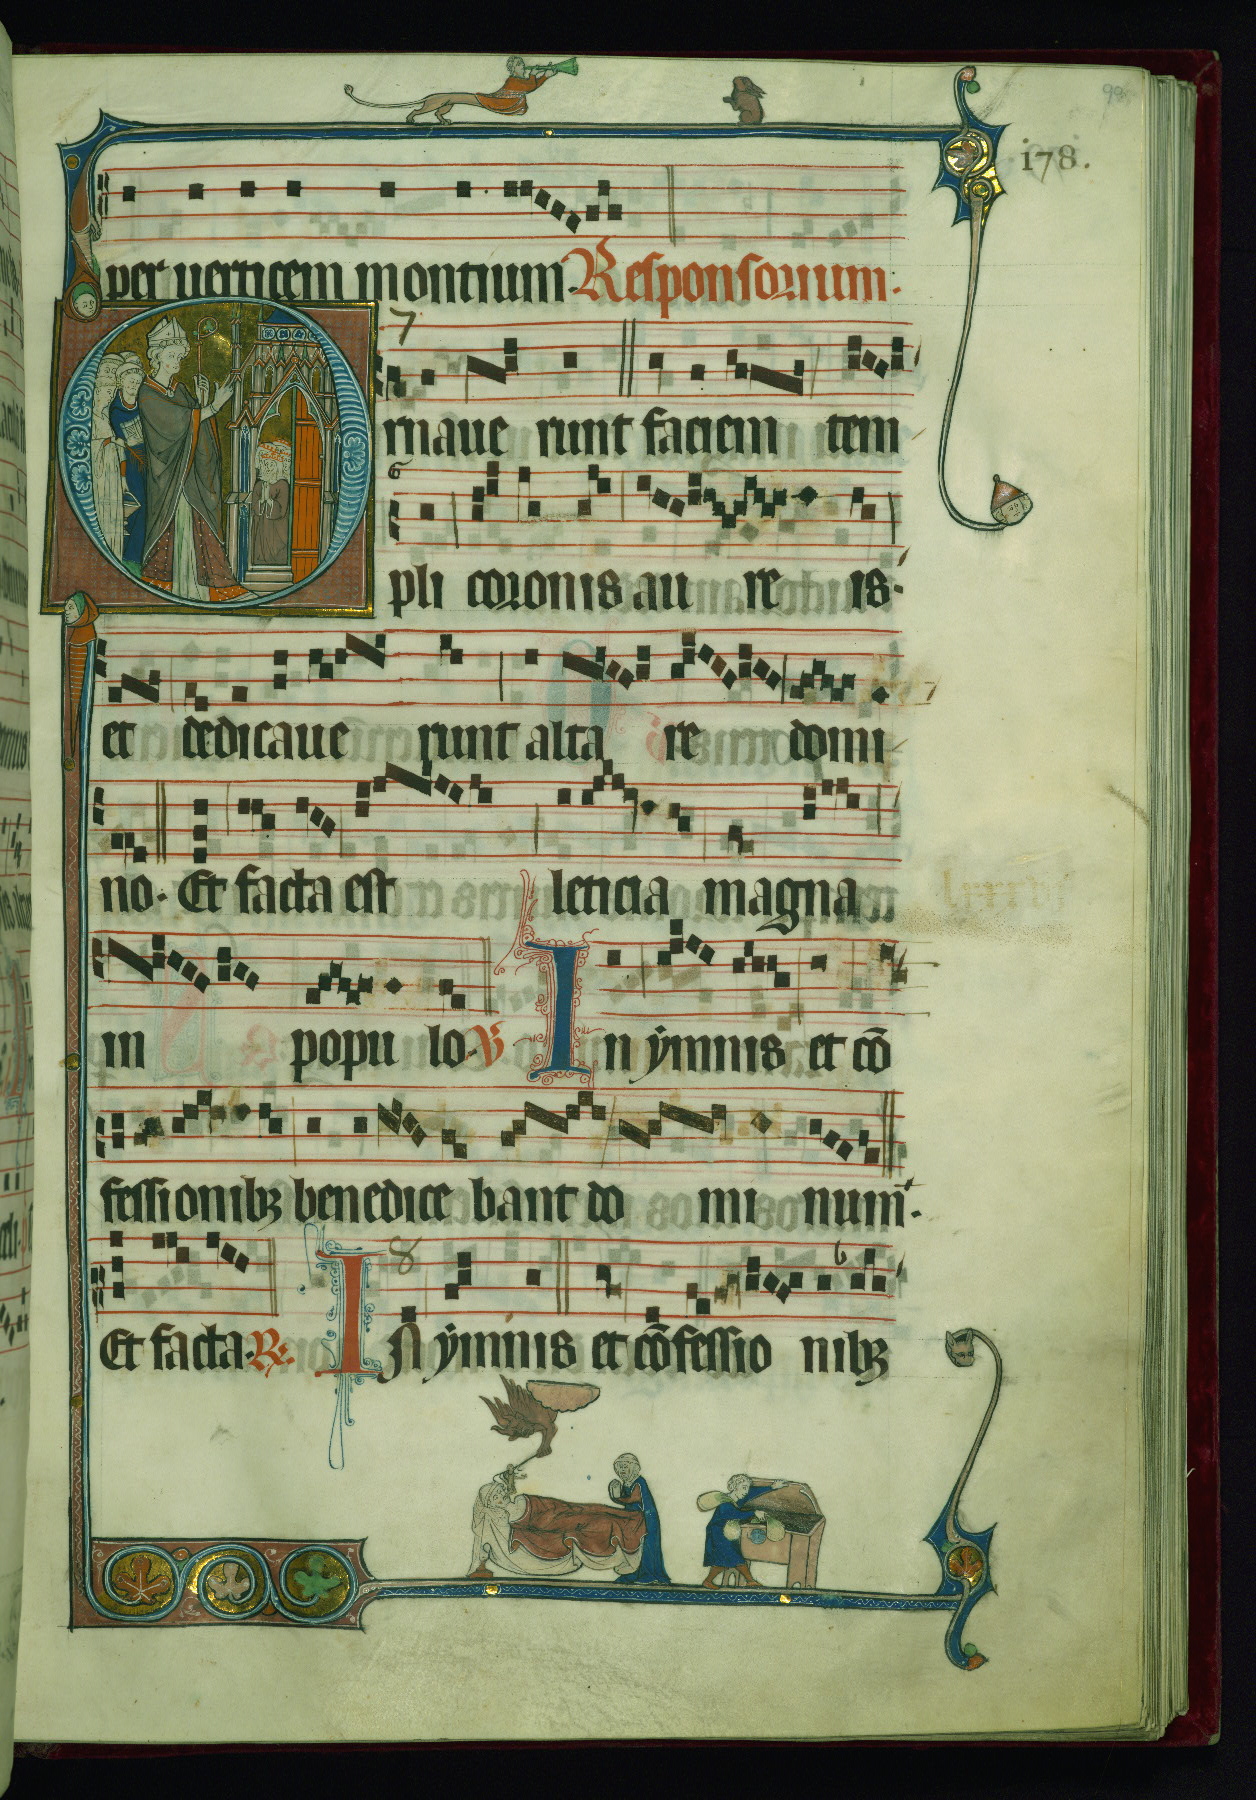 99
178.
per uerticem montium. Responsorium.
7
Ornaue runt faciem tem
6
pli coronis au re is.
et dedicaue runt alta re domi
no. Et facta est leticia magna
in popu lo. V In ẏmnis et cō
fessionibꝫ benedice bant do mi num.
8
6
Et facta. R. IN ẏmnis et cōfessio nibꝫ